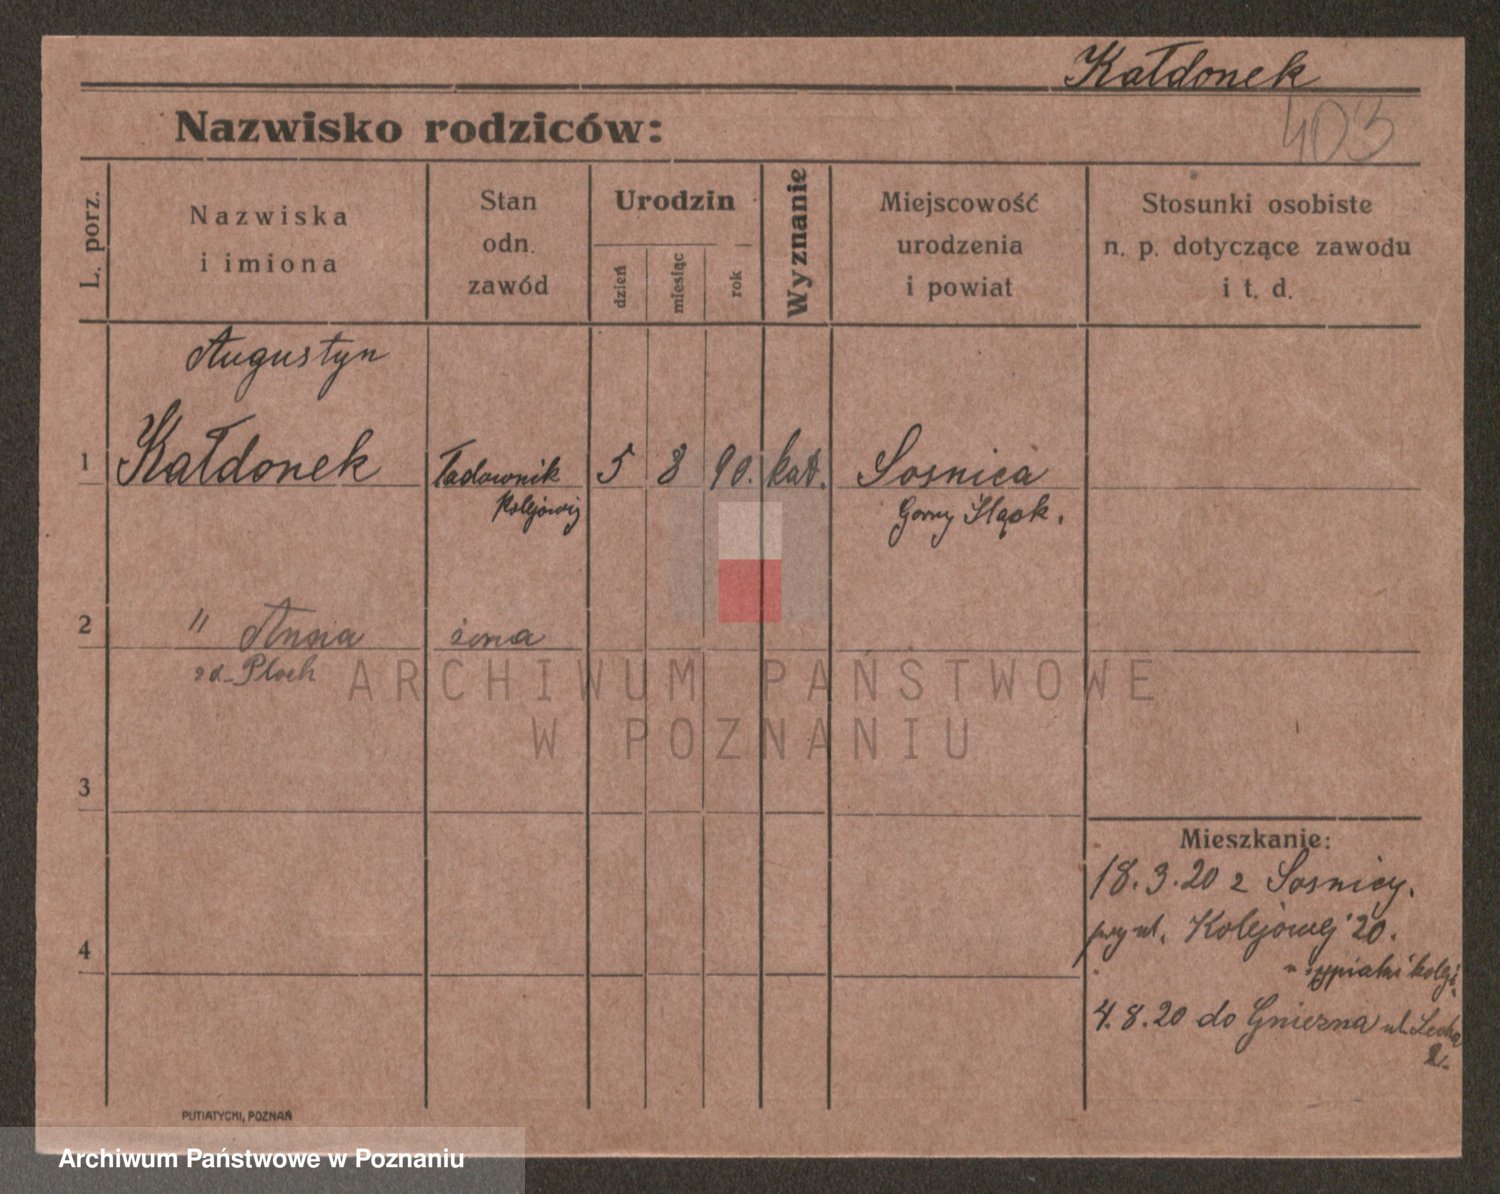 Kałdonek
Nazwisko rodziców:
403
L. porz.
Nazwiska
i imiona
Stan
odn.
zawód
Urodzin
dzień
miesiąc
rok
Wyznanie
Miejscowość
urodzenia
i powiat
Stosunki osobiste
n. p. dotyczące zawodu
i t. d.
Augustyn
1 Kałdonek ładownik 5 8 90. kat. Sosnica
kolejowy Gorny Śląsk.
2 " Anna żona
zd. Ploch
ARCHIWUM PAŃSTWOWE
W POZNANIU
3
Mieszkanie:
18.3.20 z Sosnicy.
przy ul. Kolejowej 20.
4
w sypialni kolej.
4.8.20 do Gniezna ul. Lecha
2.
PUTIATYCKI, POZNAŃ
Archiwum Państwowe w Poznaniu